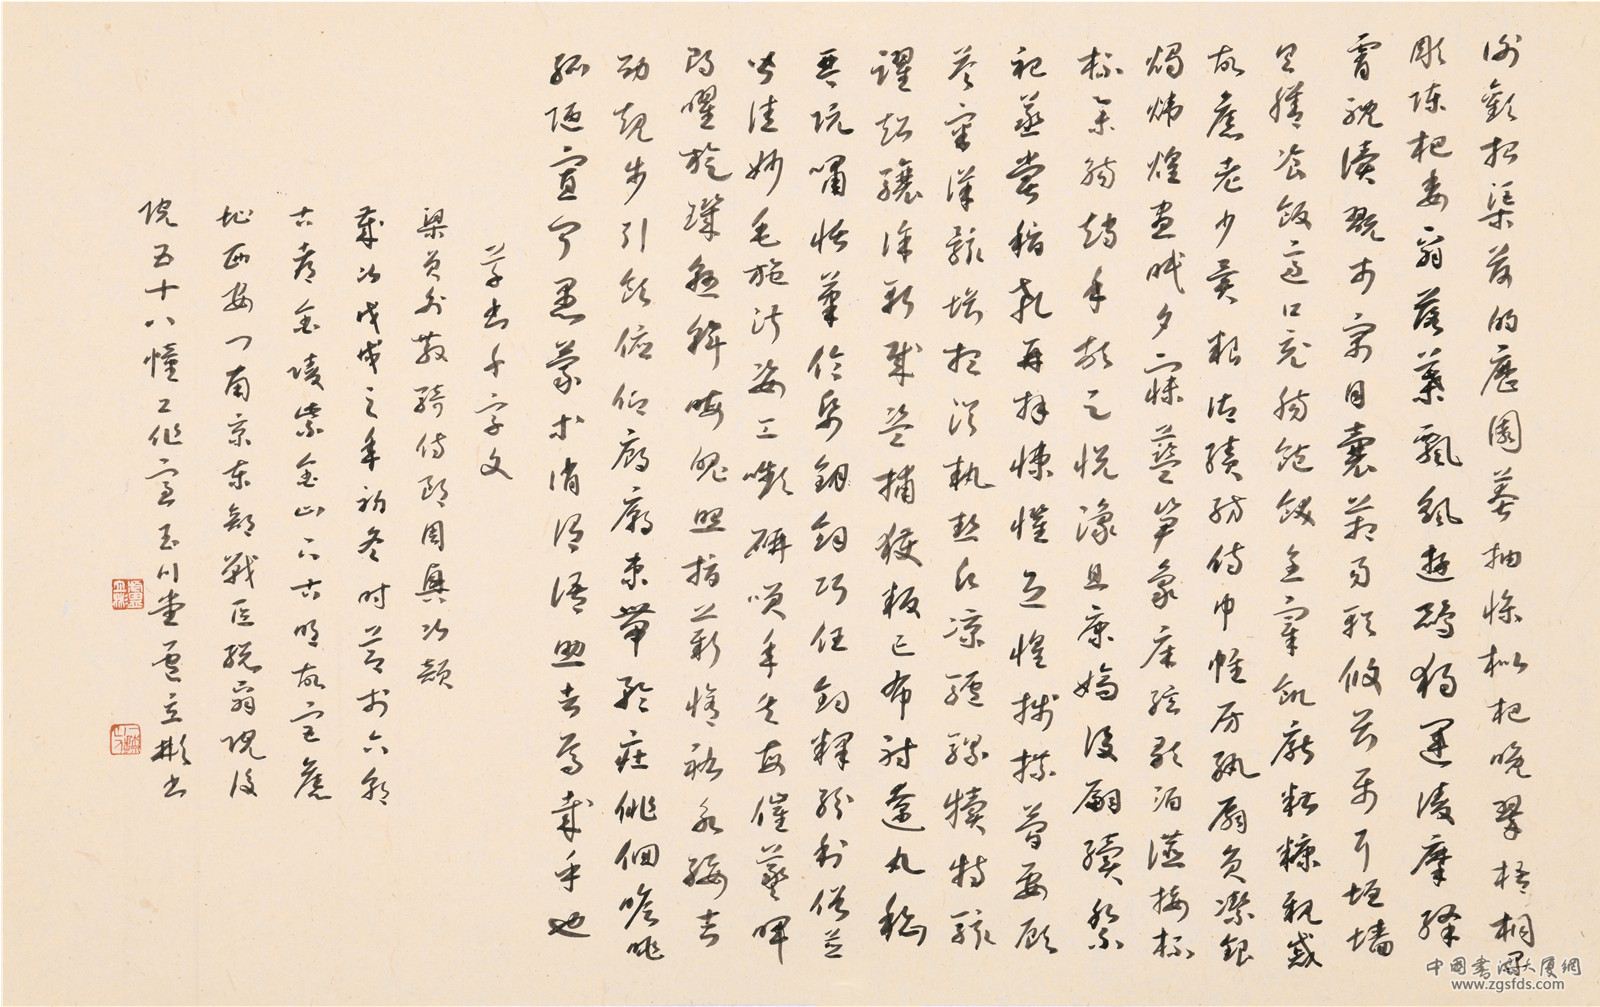 謝歡招渠荷的歷園莽抽條枇杷晚翠梧桐早
彫陳根委翳落葉飄颻遊鵾獨運凌摩絳
霄耽讀翫市寓目囊箱易輶攸畏屬耳垣墻
具膳飡飯適口充腸飽飫烹宰飢厭糟糠親戚
故舊老少異粮御績紡侍巾帷房紈扇員潔銀
燭煒煌晝眠夕寐藍笋象床弦歌酒讌接杯
杯舉觴矯手頓足悅豫且康嫡後嗣續祭
祀蒸嘗稽顙再拜悚懼恐惶牋牒簡要顧
答審詳骸垢想浴執熱願涼驢騾犢特駭
躍超驤誅斬賊盜捕獲叛亡布射遼丸嵇
琴阮嘯恬筆倫紙鈞鈞巧任釣釋紛利俗並
皆佳妙毛施淑姿工嚬妍笑年矢每催羲暉
朗曜旋璣懸斡晦魄照指薪脩祜永綏吉
劭矩步引領俯仰廊廟束帶矜莊徘徊瞻眺
孤陋寡聞愚蒙等誚謂語助者焉哉乎也
草書千字文
梁員外散騎侍郎周興次韻
歲次戊戌之年初冬時節於六朝
古都金陵紫金山下古明故宮舊
址西安門南京東部戰區總醫院後
院五十八幢工作室玉川堂盧立彬書
中国书法大厦网
www.zgsfds.com